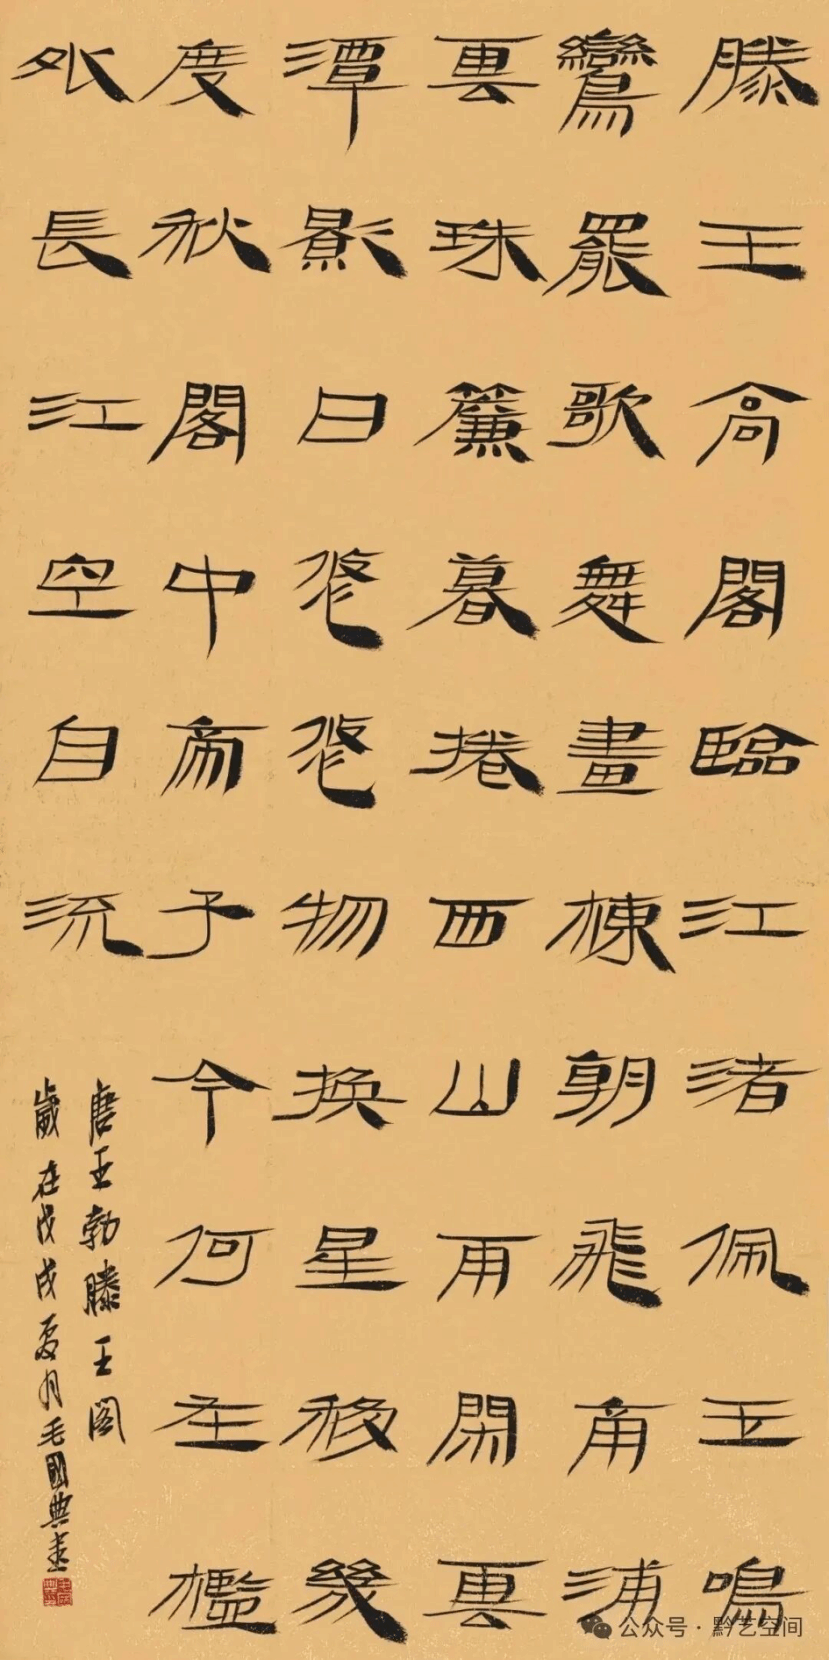 滕王高閣臨江渚佩玉鳴
鸞罷歌舞畫棟朝飛南浦
雲珠簾暮捲西山雨閑雲
潭影日悠悠物換星移幾
度秋閣中帝子今何在檻
外長江空自流
唐王勃滕王阁
歲在戊戌夏月毛國典書
公众号·黔艺空间